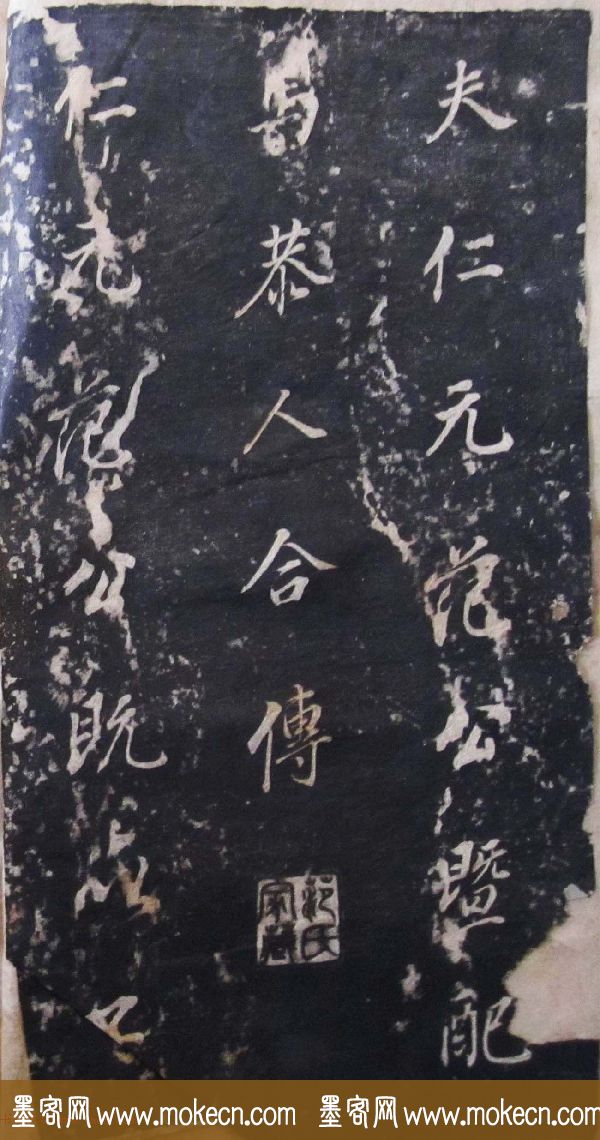 夫仁元范公暨配
馮恭人合傳
范氏家藏
仁元范公既
墨客网 www.mokecn.com 墨客网 www.mokecn.com